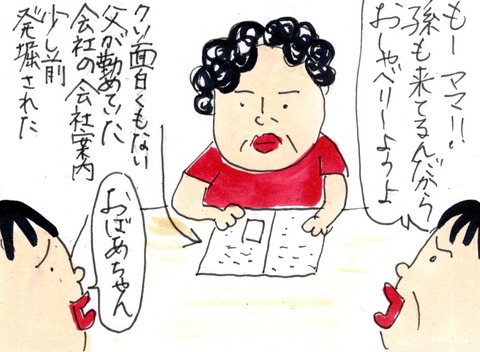 もー ママ!!
孫も来てるんだから
おしゃべりしようよ
クソ面白くもない
父が勤めていた
会社の会社案内
少し前
発掘された
おばあちゃん